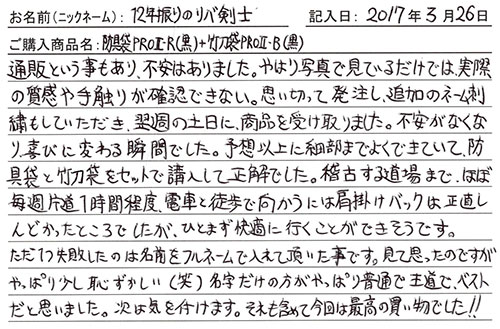 お名前(ニックネーム): 12年振りのリバ剣士 記入日: 2017年3月26日
ご購入商品名: 防具袋PROⅡ-R(黒)+竹刀袋PROⅡ-B(黒)
通販という事もあり、不安はありました。やはり写真で見ているだけでは、実際
の質感や手触りが確認できない。思い切って発注し、追加のネーム刺
繍もしていただき、翌週の土日に、商品を受け取りました。不安がなくな
り、喜びに変わる瞬間でした。予想以上に細部までよくできていて、防
具袋と竹刀袋をセットで購入して正解でした。稽古する道場まで、ほぼ
毎週片道1時間程度、電車と徒歩で向かうには肩掛けバックは、正直し
んどかったところでしたが、ひとまず快適に行くことができそうです。
ただ1つ失敗したのは名前をフルネームで入れて頂いた事です。見て思ったのですが
やっぱり少し恥ずかしい(笑)名字だけの方がやっぱり普通で王道で、ベスト
だと思いました。次は気を付けます。それも含めて今回は最高の買い物でした!!